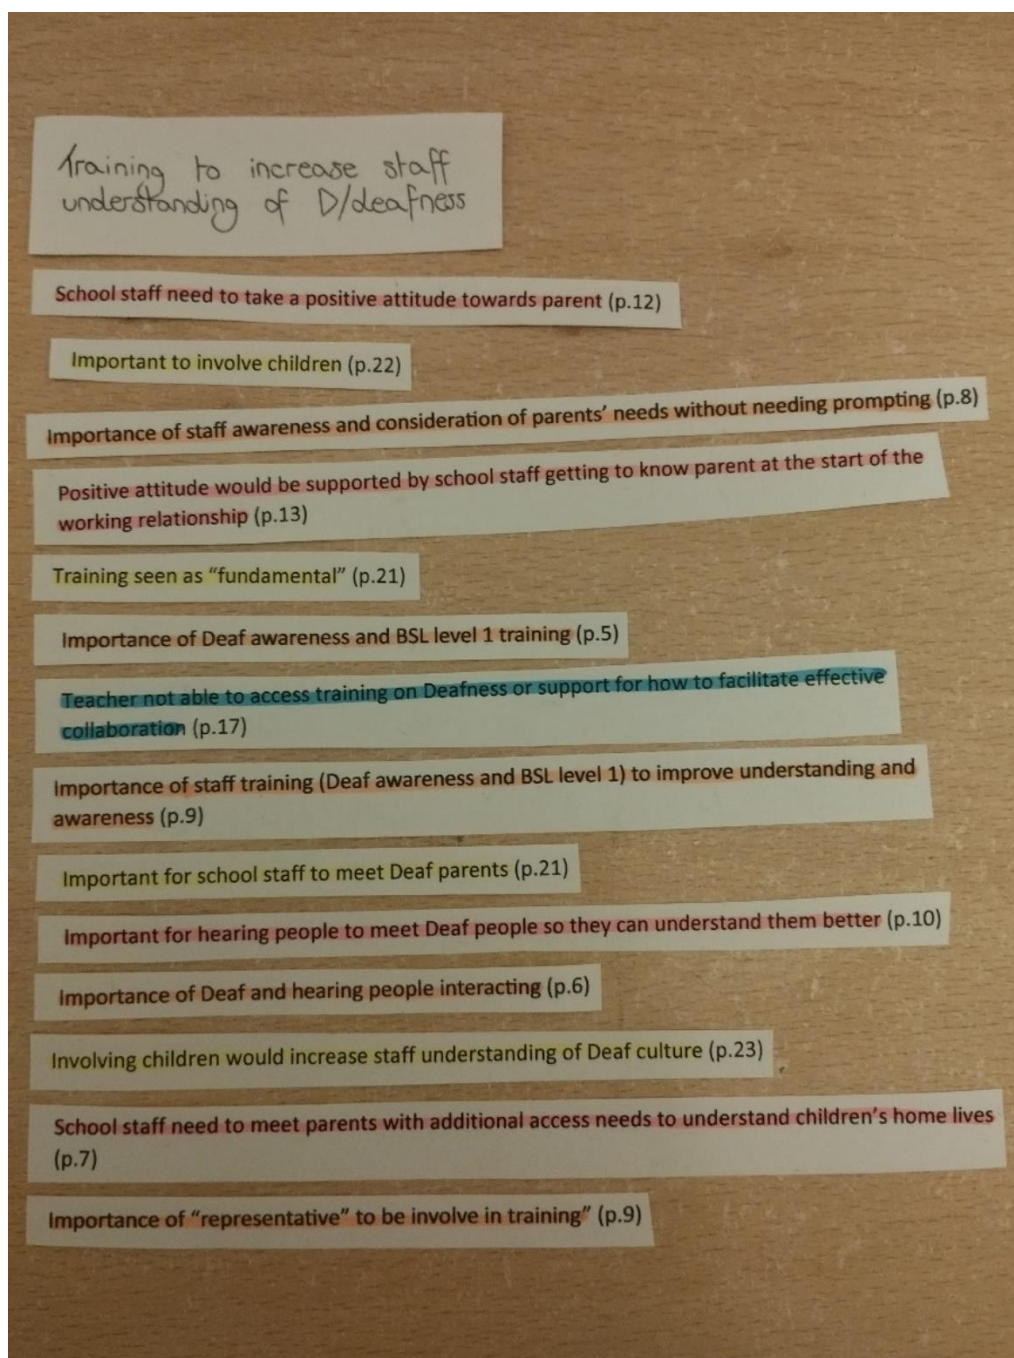 Training to increase staff
understanding of D/deafness
School staff need to take a positive attitude towards parent (p.12)
Important to involve children (p.22)
Importance of staff awareness and consideration of parents' needs without needing prompting (p.8)
Positive attitude would be supported by school staff getting to know parent at the start of the
working relationship (p.13)
Training seen as "fundamental" (p.21)
Importance of Deaf awareness and BSL level 1 training (p.5)
Teacher not able to access training on Deafness or support for how to facilitate effective
collaboration (p.17)
Importance of staff training (Deaf awareness and BSL level 1) to improve understanding and
awareness (p.9)
Important for school staff to meet Deaf parents (p.21)
Important for hearing people to meet Deaf people so they can understand them better (p.10)
Importance of Deaf and hearing people interacting (p.6)
Involving children would increase staff understanding of Deaf culture (p.23)
School staff need to meet parents with additional access needs to understand children's home lives
(p.7)
Importance of "representative" to be involve in training" (p.9)